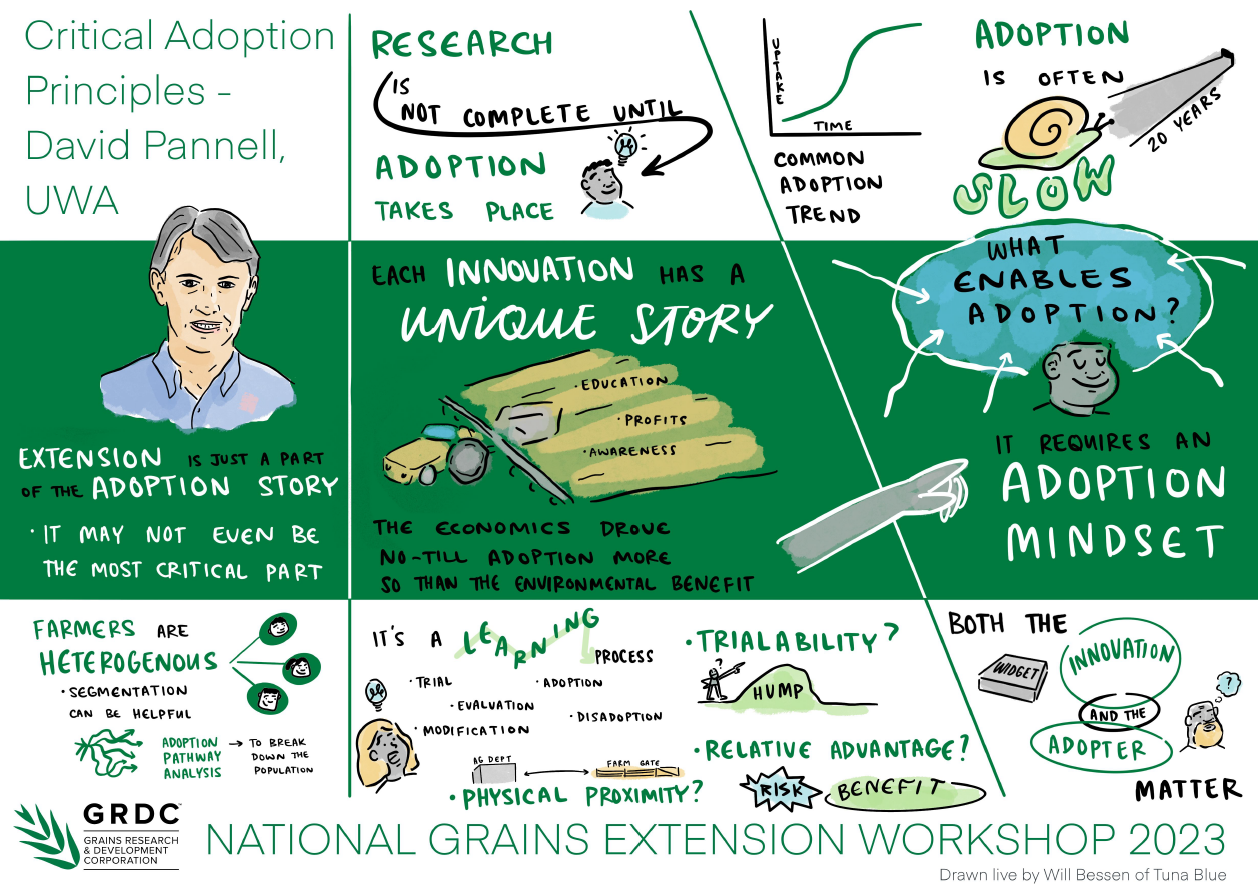 Critical Adoption
Principles -
David Pannell,
UWA
RESEARCH
IS
NOT COMPLETE UNTIL
ADOPTION
TAKES PLACE
UPTAKE
TIME
COMMON
ADOPTION
TREND
ADOPTION
IS OFTEN
20 YEARS
SLOW
EXTENSION IS JUST A PART
OF THE ADOPTION STORY
· IT MAY NOT EVEN BE
THE MOST CRITICAL PART
EACH INNOVATION HAS A
UNIQUE STORY
· EDUCATION
· PROFITS
· AWARENESS
THE ECONOMICS DROVE
NO-TILL ADOPTION MORE
SO THAN THE ENVIRONMENTAL BENEFIT
WHAT
ENABLES
ADOPTION?
IT REQUIRES AN
ADOPTION
MINDSET
FARMERS ARE
HETEROGENOUS
· SEGMENTATION
CAN BE HELPFUL
ADOPTION
PATHWAY
ANALYSIS
→ TO BREAK
DOWN THE
POPULATION
IT'S A LEARNING
PROCESS
· TRIAL
· ADOPTION
· EVALUATION
· DISADOPTION
· MODIFICATION
AG DEPT
FARM GATE
· PHYSICAL PROXIMITY?
· TRIALABILITY?
?
HUMP
· RELATIVE ADVANTAGE?
RISK
BENEFIT
BOTH THE
WIDGET
INNOVATION
AND THE
ADOPTER
?
MATTER
GRDC™
GRAINS RESEARCH
& DEVELOPMENT
CORPORATION
NATIONAL GRAINS EXTENSION WORKSHOP 2023
Drawn live by Will Bessen of Tuna Blue